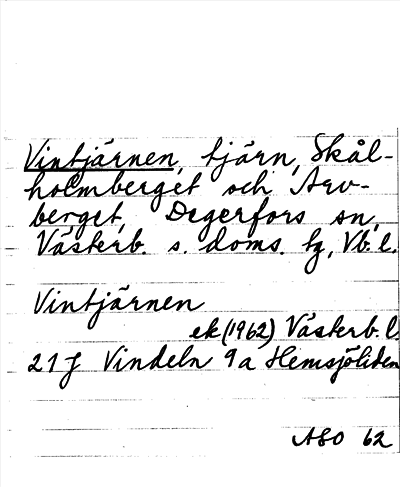 Vintjärnen, tjärn, Skål-
holmberget och Arv-
berget, Degerfors sn,
Västerb. s. doms. tg, Vb. l.
Vintjärnen
ek (1962) Västerb. l.
21 J Vindeln 9a Hemsjöliden
ASO 62